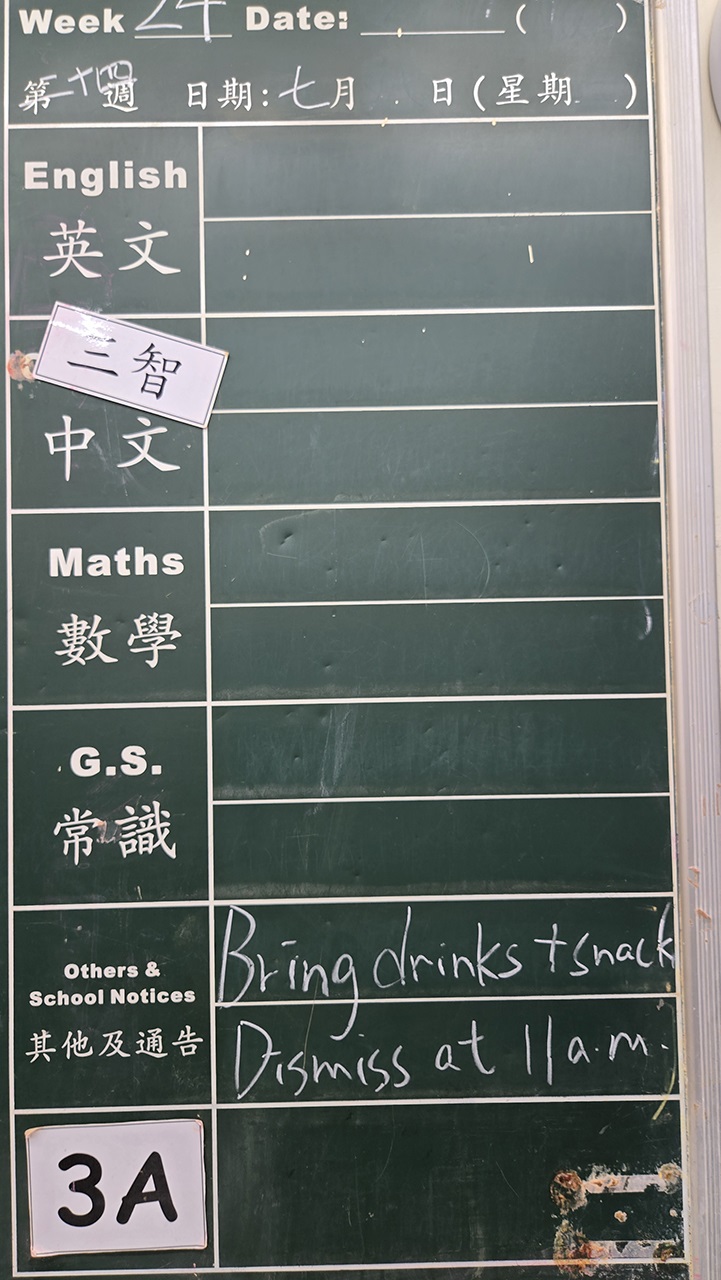 Week 24 Date: ( )
第二十四週 日期:七月 日(星期 )
English
英文
三智
中文
Maths
數學
G.S.
常識
Others &
School Notices
其他及通告
Bring drinks + snack
Dismiss at 11 a.m.
3A